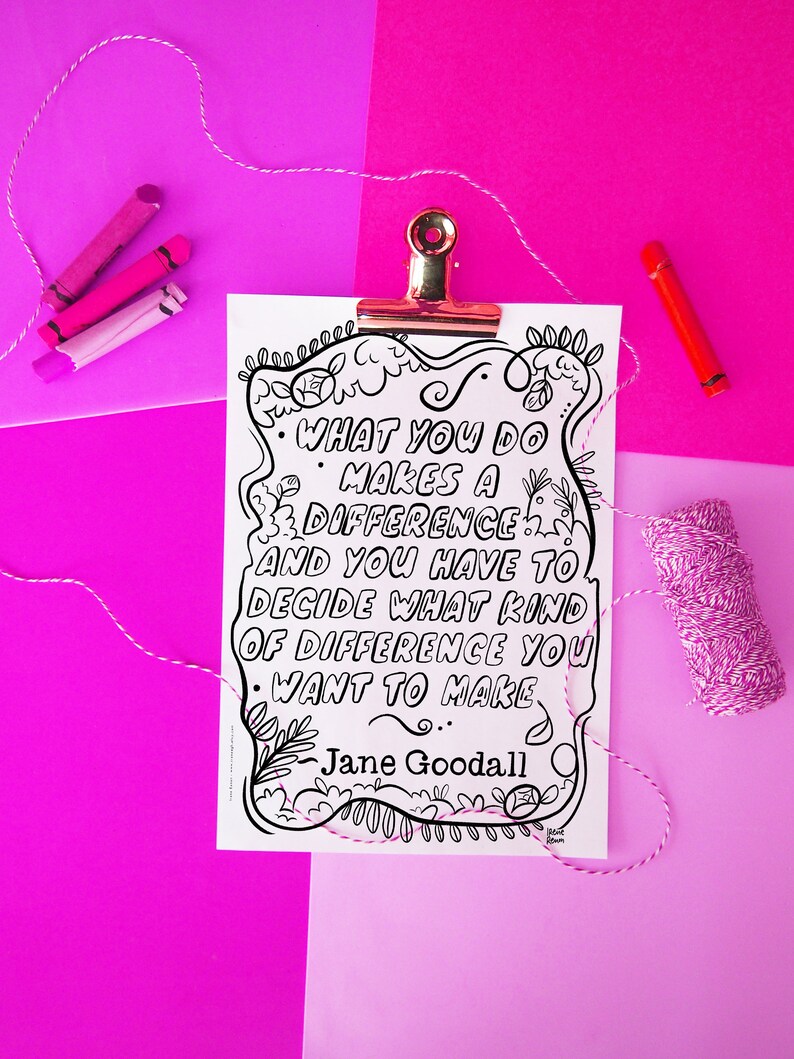 WHAT YOU DO
MAKES A
DIFFERENCE
AND YOU HAVE TO
DECIDE WHAT KIND
OF DIFFERENCE YOU
WANT TO MAKE
~Jane Goodall
Irene